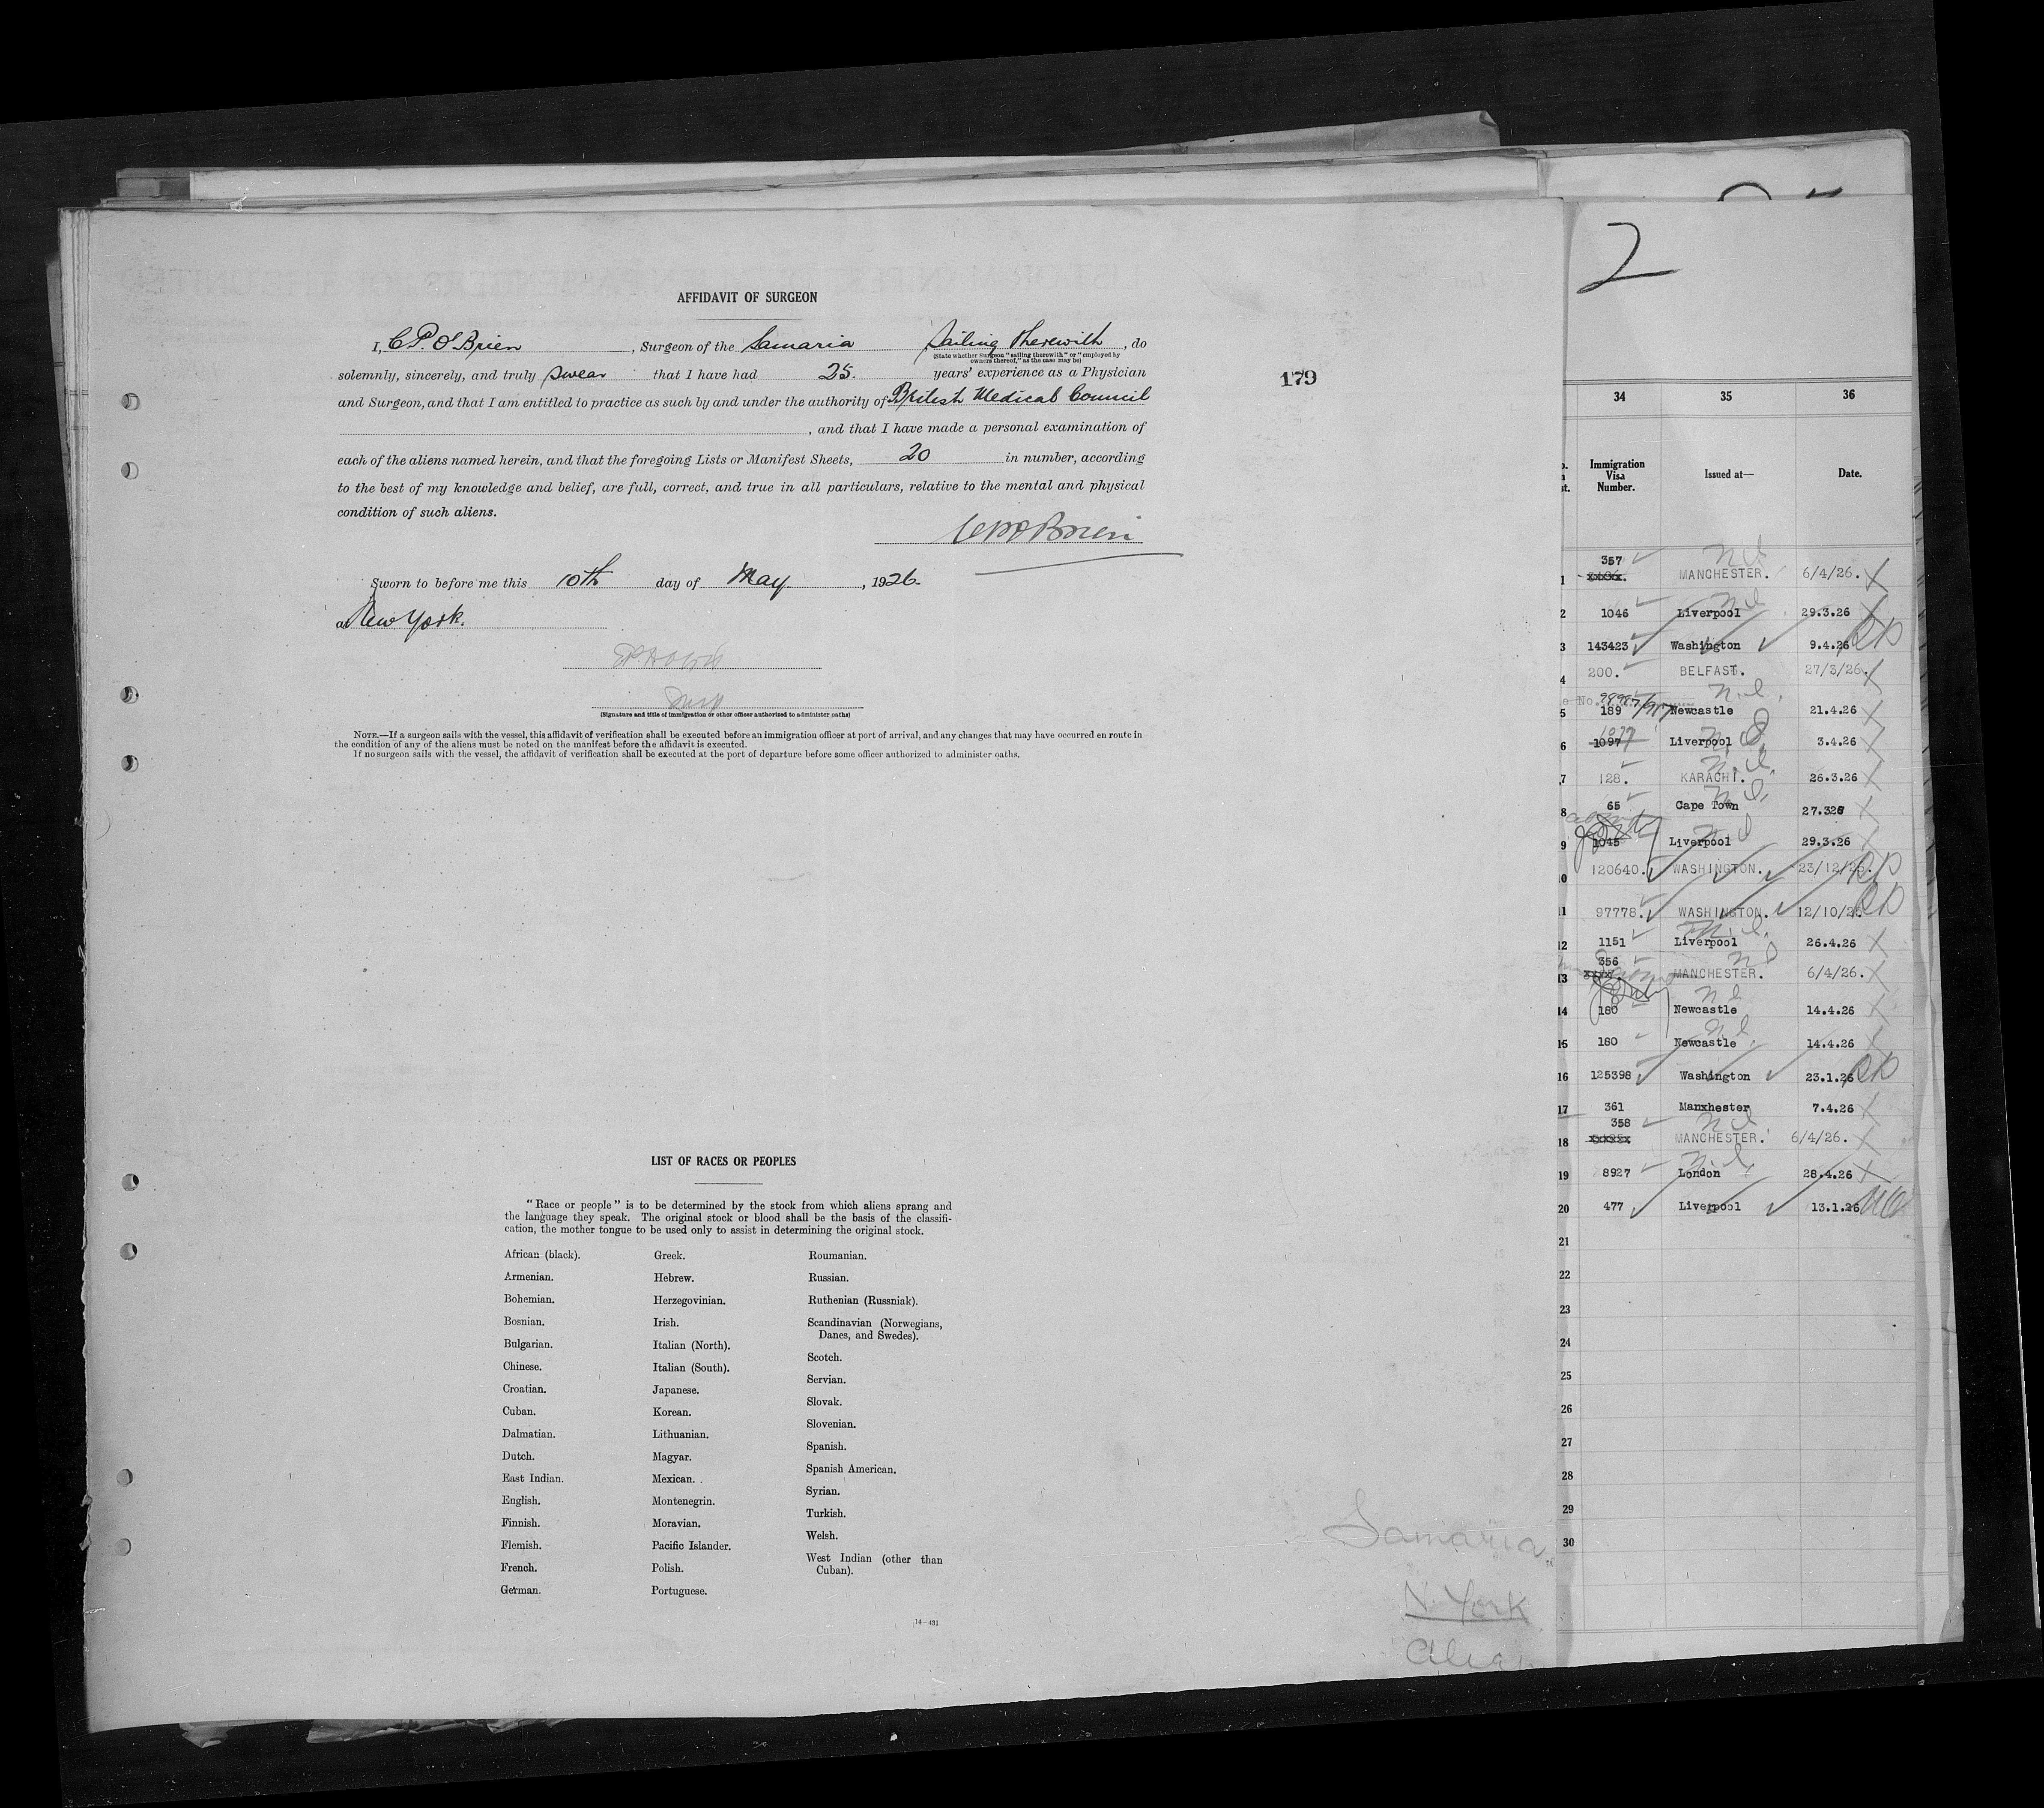 AFFIDAVIT OF SURGEON
I, C P. O'Brien, Surgeon of the Samaria Sailing therewith, do
(State whether Surgeon "sailing therewith" or "employed by
owners thereof," as the case may be)
solemnly, sincerely, and truly swear that I have had 25. years' experience as a Physician
and Surgeon, and that I am entitled to practice as such by and under the authority of British Medical Council
, and that I have made a personal examination of
each of the aliens named herein, and that the foregoing Lists or Manifest Sheets, 20 in number, according
to the best of my knowledge and belief, are full, correct, and true in all particulars, relative to the mental and physical
condition of such aliens.
CPO'Brien
Sworn to before me this 10th day of May, 1926.
at New York.
(Signature and title of immigration or other officer authorized to administer oaths)
NOTE.—If a surgeon sails with the vessel, this affidavit of verification shall be executed before an immigration officer at port of arrival, and any changes that may have occurred en route in
the condition of any of the aliens must be noted on the manifest before the affidavit is executed.
If no surgeon sails with the vessel, the affidavit of verification shall be executed at the port of departure before some officer authorized to administer oaths.
179
LIST OF RACES OR PEOPLES
"Race or people" is to be determined by the stock from which aliens sprang and
the language they speak. The original stock or blood shall be the basis of the classifi-
cation, the mother tongue to be used only to assist in determining the original stock.
African (black).
Armenian.
Bohemian.
Bosnian.
Bulgarian.
Chinese.
Croatian.
Cuban.
Dalmatian.
Dutch.
East Indian.
English.
Finnish.
Flemish.
French.
German.
Greek.
Hebrew.
Herzegovinian.
Irish.
Italian (North).
Italian (South).
Japanese.
Korean.
Lithuanian.
Magyar.
Mexican.
Montenegrin.
Moravian.
Pacific Islander.
Polish.
Portuguese.
Roumanian.
Russian.
Ruthenian (Russniak).
Scandinavian (Norwegians,
Danes, and Swedes).
Scotch.
Servian.
Slovak.
Slovenian.
Spanish.
Spanish American.
Syrian.
Turkish.
Welsh.
West Indian (other than
Cuban).
14—431
Samaria
N. York
2
34 35 36
Immigration
Visa
Number.
Issued at—
Date.
357
1 MANCHESTER. 6/4/26.
2 1046 Liverpool 29.3.26
3 143423 Washington 9.4.26
4 200. BELFAST. 27/3/26.
5 189 Newcastle 21.4.26
6 1097 Liverpool 3.4.26
7 128. KARACHI. 26.3.26
8 65 Cape Town 27.326
9 1045 Liverpool 29.3.26
10 120640. WASHINGTON. 23/12/25.
11 97778. WASHINGTON. 12/10/25.
12 1151 Liverpool 26.4.26
356
13 MANCHESTER. 6/4/26.
14 180 Newcastle 14.4.26
15 180 Newcastle 14.4.26
16 125398 Washington 23.1.26
17 361 Manxhester 7.4.26
358
18 MANCHESTER. 6/4/26.
19 8927 London 28.4.26
20 477 Liverpool 13.1.26
21
22
23
24
25
26
27
28
29
30